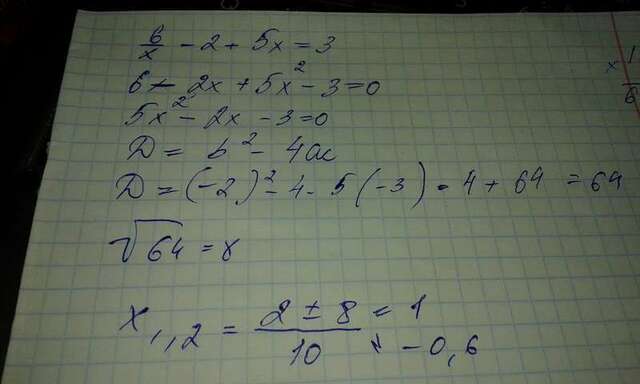 6/x - 2 + 5x = 3
6 - 2x + 5x² - 3 = 0
5x² - 2x - 3 = 0
D = b² - 4ac
D = (-2)² - 4 · 5 (-3) = 4 + 64 = 64
√64 = 8
x₁,₂ = (2 ± 8)/10 = 1
= -0,6
× 1
6